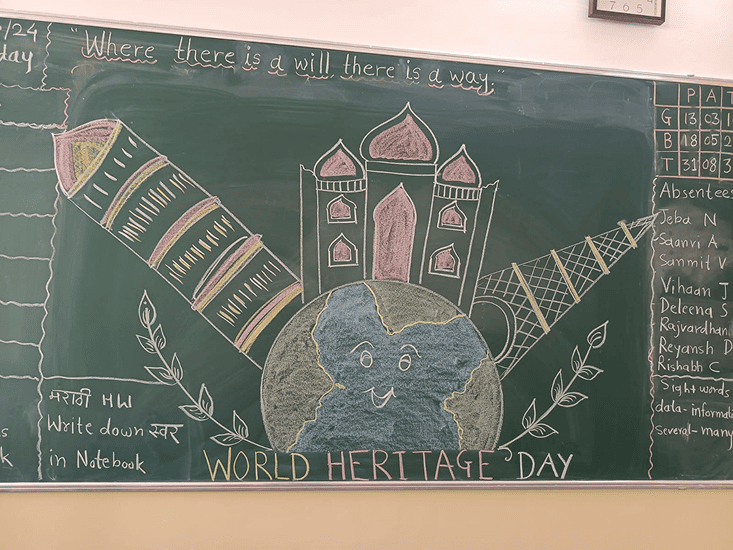 /24
day
"Where there is a will there is a way."
मराठी HW
Write down स्वर
in Notebook
WORLD HERITAGE DAY
P A T
G 13 03 1
B 18 05 2
T 31 08 3
Absentees
Jeba N
Saanvi A
Sanmit V
Vihaan J
Deleena S
Rajvardhan
Reyansh D
Rishabh C
Sight words
data- informati
several- many
705